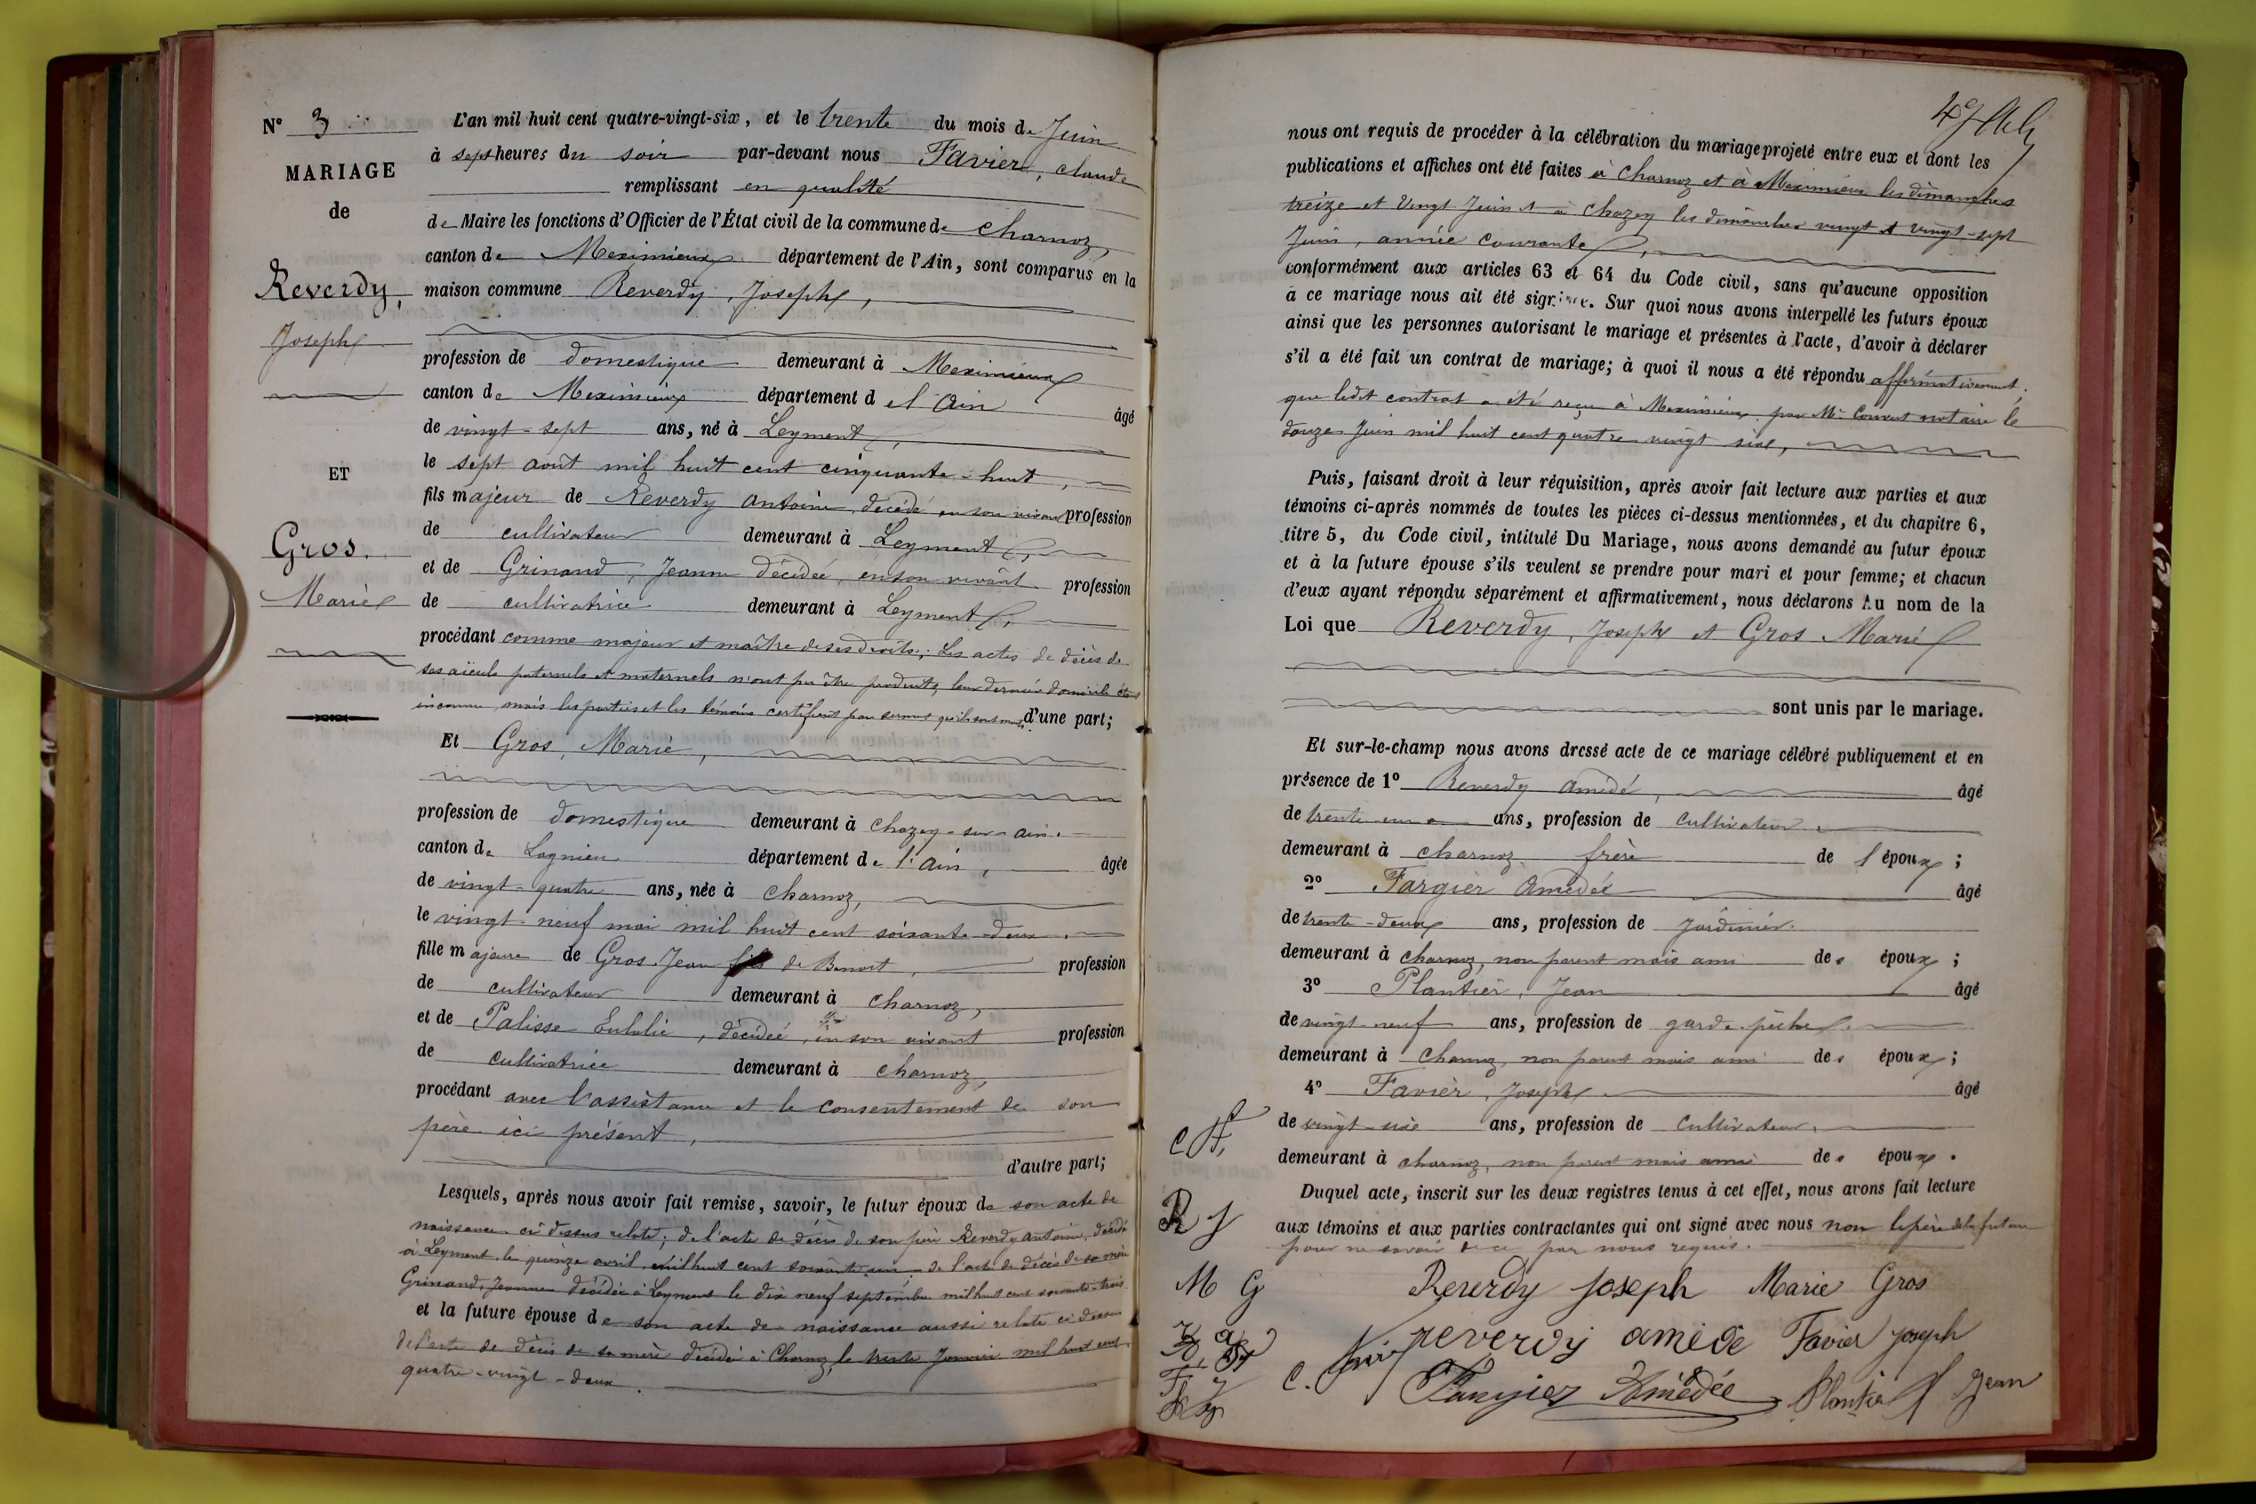 N° 3
MARIAGE
de
Reverdy,
Joseph
ET
Gros.
Marie
L'an mil huit cent quatre-vingt-six, et le trente du mois de Juin
à sept heures du soir par-devant nous Favier, claude
remplissant en qualité
de Maire les fonctions d'Officier de l'État civil de la commune de Charnoz,
canton de Meximieux département de l'Ain, sont comparus en la
maison commune Reverdy, Joseph,
profession de domestique demeurant à Meximieux
canton de Meximieux département d el'Ain âgé
de vingt-sept ans, né à Leyment,
le sept août mil huit cent cinquante-huit,
fils majeur de Reverdy Antoine, décédé en son vivant profession
de cultivateur demeurant à Leyment,
et de Grinand, Jeanne décédée, en son vivant profession
de cultivatrice demeurant à Leyment,
procédant comme majeur et maître de ses droits; Les actes de décès de
ses aïeuls paternels et maternels n'ont pu être produits, leur dernier domicile étant
inconnu, mais les parties et les témoins certifient par serment qu'ils sont morts. d'une part;
Et Gros, Marie,
profession de domestique demeurant à Chazey-sur-ain.
canton de Lagnieu département de l'Ain, âgée
de vingt-quatre ans, née à Charnoz,
le vingt-neuf mai mil huit cent soixante-deux.
fille majeure de Gros Jean fils de Benoit, profession
de cultivateur demeurant à Charnoz,
et de Palisse Eulalie, décédée, en son vivant profession
de cultivatrice demeurant à Charnoz,
procédant avec l'assistance et le consentement de son
père ici présent,
d'autre part;
Lesquels, après nous avoir fait remise, savoir, le futur époux de son acte de
naissance ci-dessus relaté; de l'acte de décès de son père Reverdy Antoine, décédé
à Leyment le quinze avril mil huit cent soixante un de l'acte de décès de sa mère
Grinand, Jeanne décédée à Leyment le dix neuf septembre mil huit cent soixante-trois
et la future épouse de son acte de naissance aussi relaté ci-dessus
de l'acte de décès de sa mère décédée à Charnoz, le trente Janvier mil huit cent
quatre-vingt-deux.
nous ont requis de procéder à la célébration du mariage projeté entre eux et dont les
publications et affiches ont été faites à Charnoz et à Meximieux les dimanches
treize et Vingt Juin et à Chazey les dimanches vingt et vingt-sept
Juin, année courante,
conformément aux articles 63 et 64 du Code civil, sans qu'aucune opposition
à ce mariage nous ait été signifiée. Sur quoi nous avons interpellé les futurs époux
ainsi que les personnes autorisant le mariage et présentes à l'acte, d'avoir à déclarer
s'il a été fait un contrat de mariage; à quoi il nous a été répondu affirmativement.
que ledit contrat a été reçu à Meximieux par Me Convert notaire le
douze Juin mil huit cent quatre vingt six,
Puis, faisant droit à leur réquisition, après avoir fait lecture aux parties et aux
témoins ci-après nommés de toutes les pièces ci-dessus mentionnées, et du chapitre 6,
titre 5, du Code civil, intitulé Du Mariage, nous avons demandé au futur époux
et à la future épouse s'ils veulent se prendre pour mari et pour femme; et chacun
d'eux ayant répondu séparément et affirmativement, nous déclarons Au nom de la
Loi que Reverdy, Joseph et Gros Marie
sont unis par le mariage.
Et sur-le-champ nous avons dressé acte de ce mariage célébré publiquement et en
présence de 1° Reverdy Amédé, âgé
de trente un ans, profession de cultivateur.
demeurant à Charnoz frère de l'époux;
2° Fargier Amédée âgé
de trente-deux ans, profession de jardinier.
demeurant à Charnoz, non parent mais ami des époux;
3° Plantier, Jean âgé
de vingt-neuf ans, profession de garde-pêche.
demeurant à Charnoz, non parent mais ami des époux;
4° Favier, Joseph âgé
de vingt-six ans, profession de Cultivateur,
demeurant à Charnoz, non parent mais ami des époux.
Duquel acte, inscrit sur les deux registres tenus à cet effet, nous avons fait lecture
aux témoins et aux parties contractantes qui ont signé avec nous non le père de la future
pour ne savoir de ce par nous requis.
R J
M G
Reverdy Joseph Marie Gros
reverdy amédé Favier Joseph
C. Favier Fargier Amédée Plantier Jean